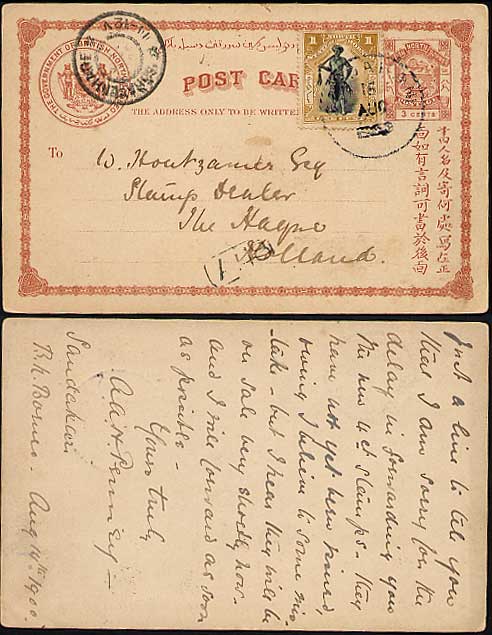 POST CARD
THE GOVERNMENT OF BRITISH NORTH
THE ADDRESS ONLY TO BE WRITTEN
NORTH
1
1
3 CENTS
AUG
'S GRAVENHAGE
書由人名及寄何處寫在正
面如有言詞可書於後面
To
W. Houtzamer Esq
Stamp Dealer
The Hague
Holland.
Just a line to tell you
that I am sorry for the
delay in forwarding you
the new 4ct stamps - they
have not yet been issued,
owing I believe to some mis-
take - but I hear they will be
on sale very shortly now.
and I will forward as soon
as possible -
Yours truly
Sandakan
B.N. Borneo - Aug 14th 1900.